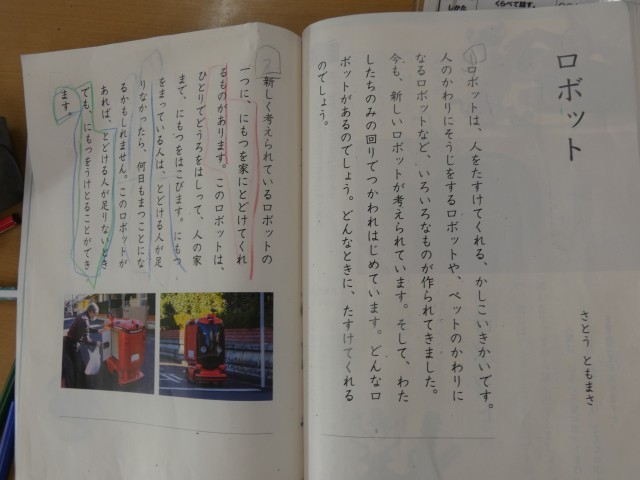 ロボット
さとう ともまさ
1
ロボットは、人をたすけてくれる、かしこいきかいです。
人のかわりにそうじをするロボットや、ペットのかわりに
なるロボットなど、いろいろなものが作られてきました。
今も、新しいロボットが考えられています。そして、わた
したちのみの回りでつかわれはじめています。どんなロ
ボットがあるのでしょう。どんなときに、たすけてくれる
のでしょう。
2
新しく考えられているロボットの
一つに、にもつを家にとどけてくれ
るものがあります。このロボットは、
ひとりでどうろをはしって、人の家
まで、にもつをはこびます。にもつ
をまっている人は、とどける人が足
りなかったら、何日もまつことにな
るかもしれません。このロボットが
あれば、とどける人が足りないとき
でも、にもつをうけとることができ
ます。
しかた
くらべて話す。